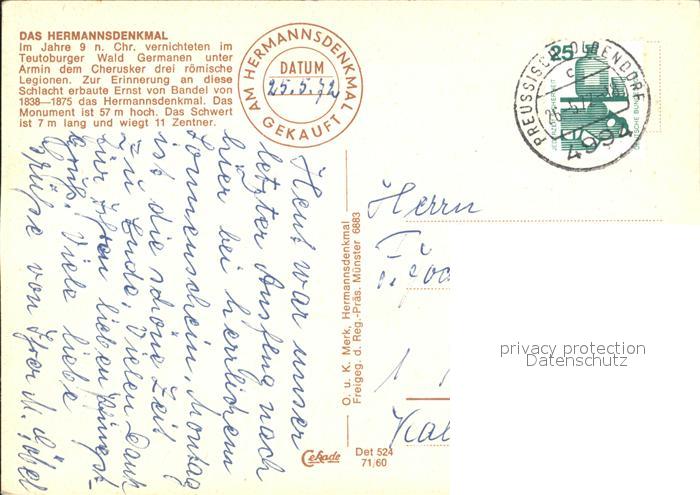 DAS HERMANNSDENKMAL
Im Jahre 9 n. Chr. vernichteten im
Teutoburger Wald Germanen unter
Armin dem Cherusker drei römische
Legionen. Zur Erinnerung an diese
Schlacht erbaute Ernst von Bandel von
1838—1875 das Hermannsdenkmal. Das
Monument ist 57 m hoch. Das Schwert
ist 7 m lang und wiegt 11 Zentner.
AM HERMANNSDENKMAL
DATUM
25.5.72
GEKAUFT
25
JEDERZEIT SICHERHEIT
DEUTSCHE BUNDESPOST
PREUSSISCH OLDENDORF
c
4994
Heut war unser
letzter Ausflug nach
hier bei herrlichem
Sonnenschein. Montag
ist die schöne Zeit
zu Ende. Vielen Dank
für Ihren lieben Pfingst-
gruß. Viele liebe
Grüße von Ihrer M. Göbel
O. u. K. Merk, Hermannsdenkmal
Freigeg. d. Reg.-Präs. Münster 6883
Herrn
Cekade
Det 524
71/60
privacy protection
Datenschutz